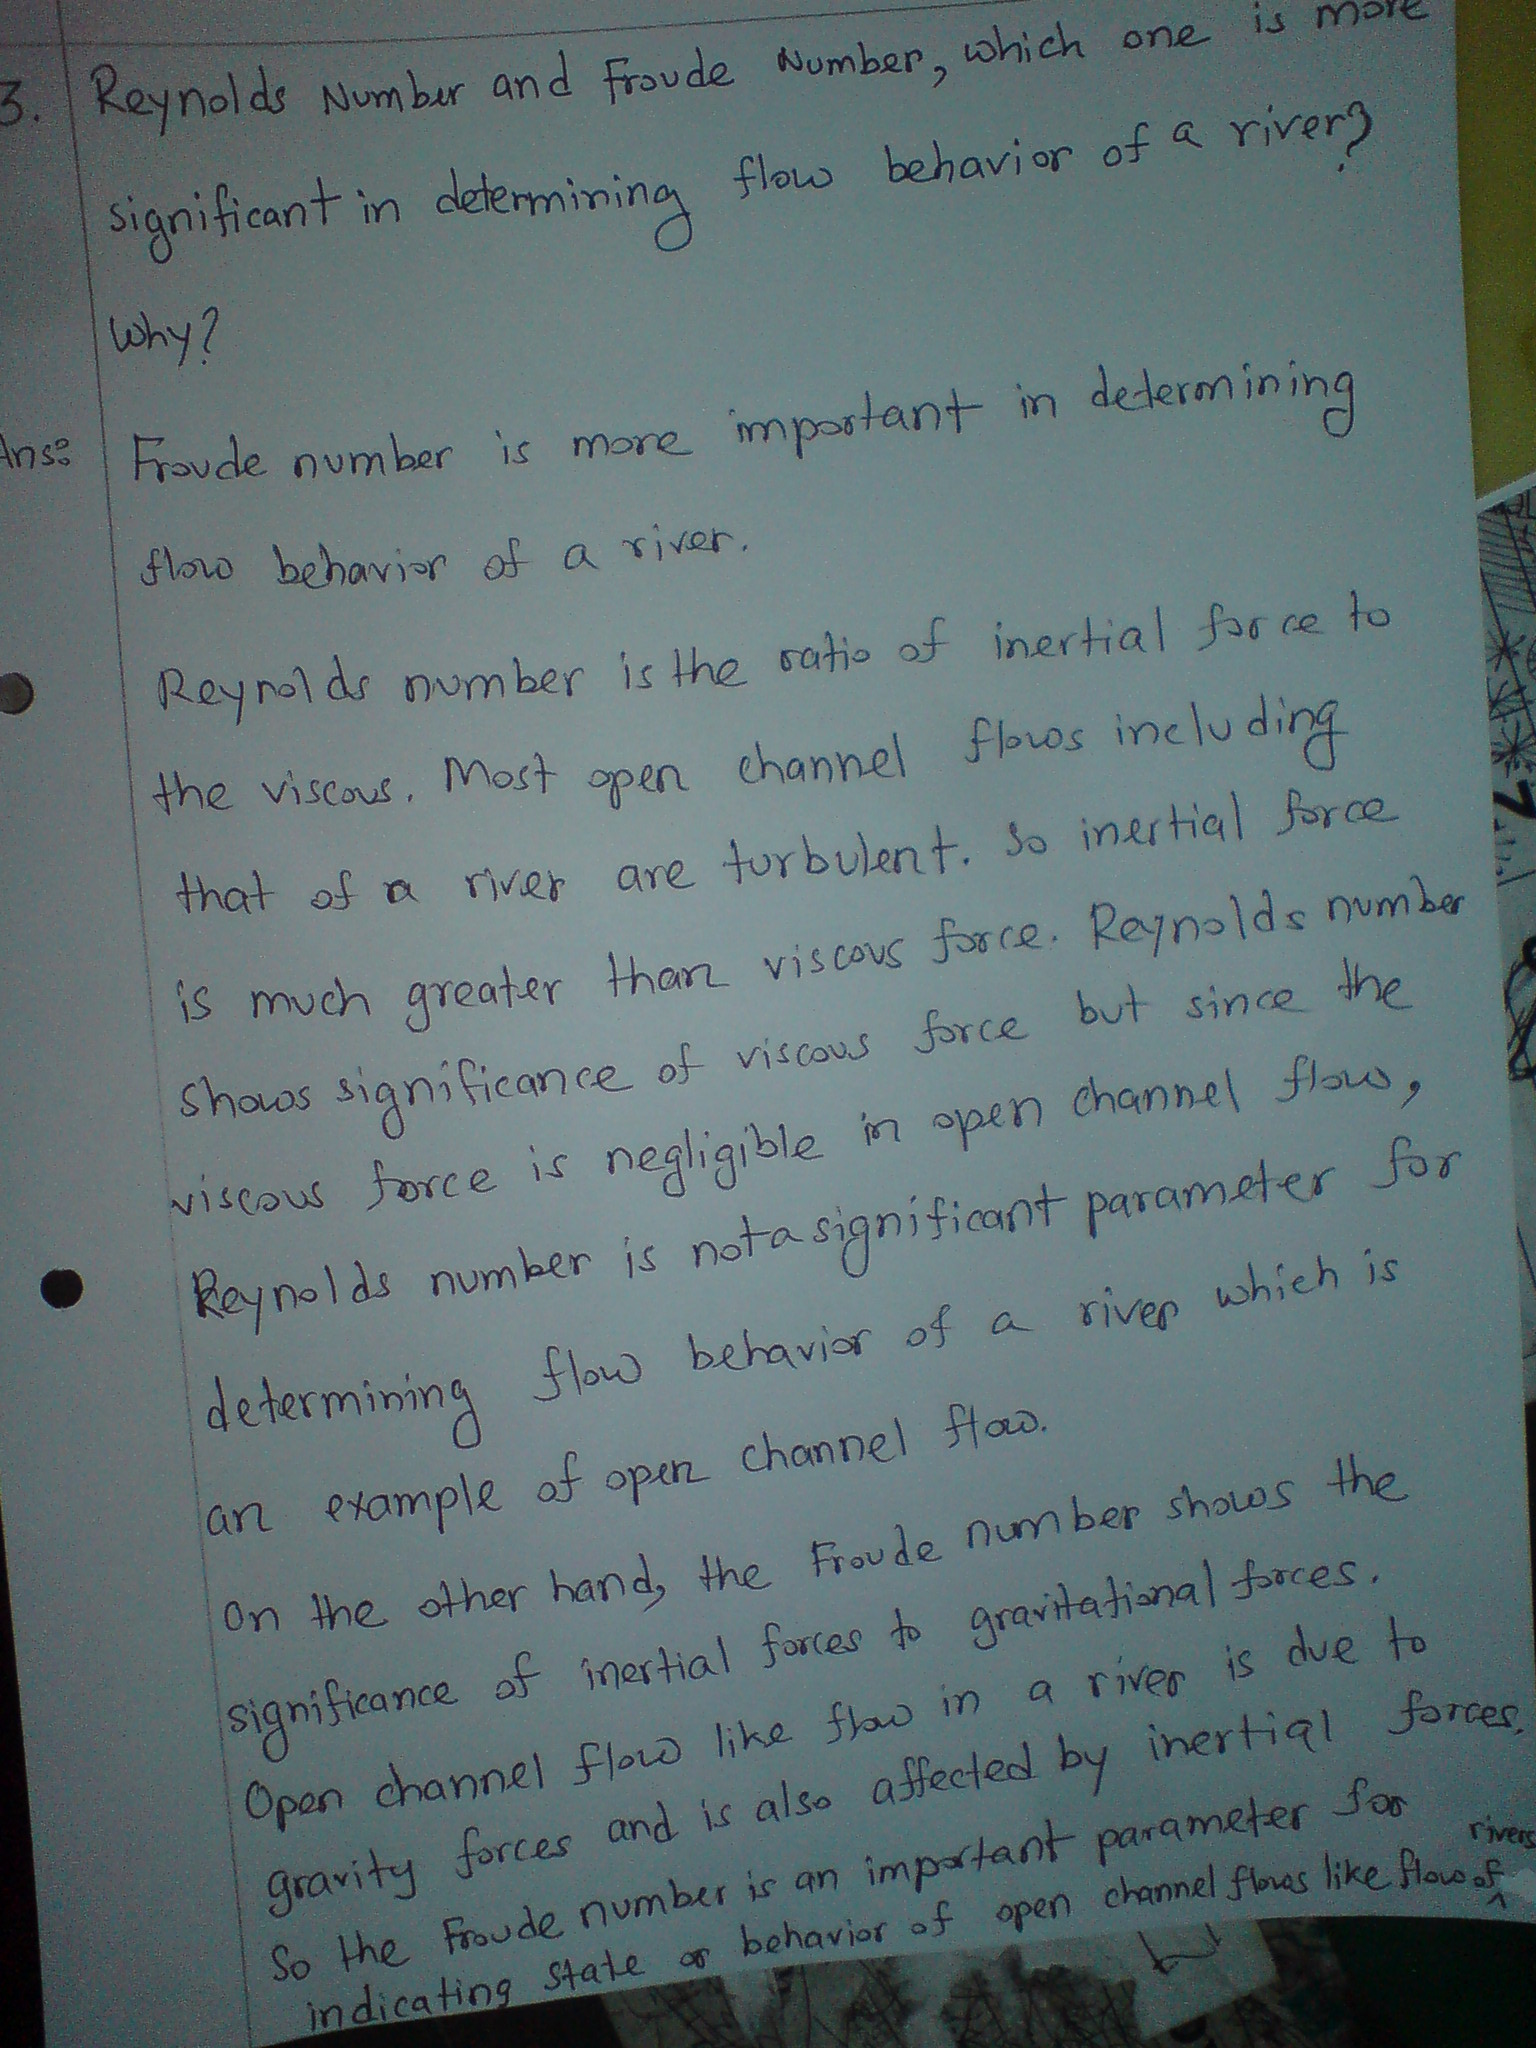 3. Reynolds Number and Froude Number, which one is more
significant in determining flow behavior of a river?
Why?
Ans: Froude number is more important in determining
flow behavior of a river.
Reynolds number is the ratio of inertial force to
the viscous. Most open channel flows including
that of a river are turbulent. So inertial force
is much greater than viscous force. Reynolds number
shows significance of viscous force but since the
viscous force is negligible in open channel flow,
Reynolds number is not a significant parameter for
determining flow behavior of a river which is
an example of open channel flow.
On the other hand, the Froude number shows the
significance of inertial forces to gravitational forces.
Open channel flow like flow in a river is due to
gravity forces and is also affected by inertial forces.
So the Froude number is an important parameter for
indicating state or behavior of open channel flows like flow of rivers